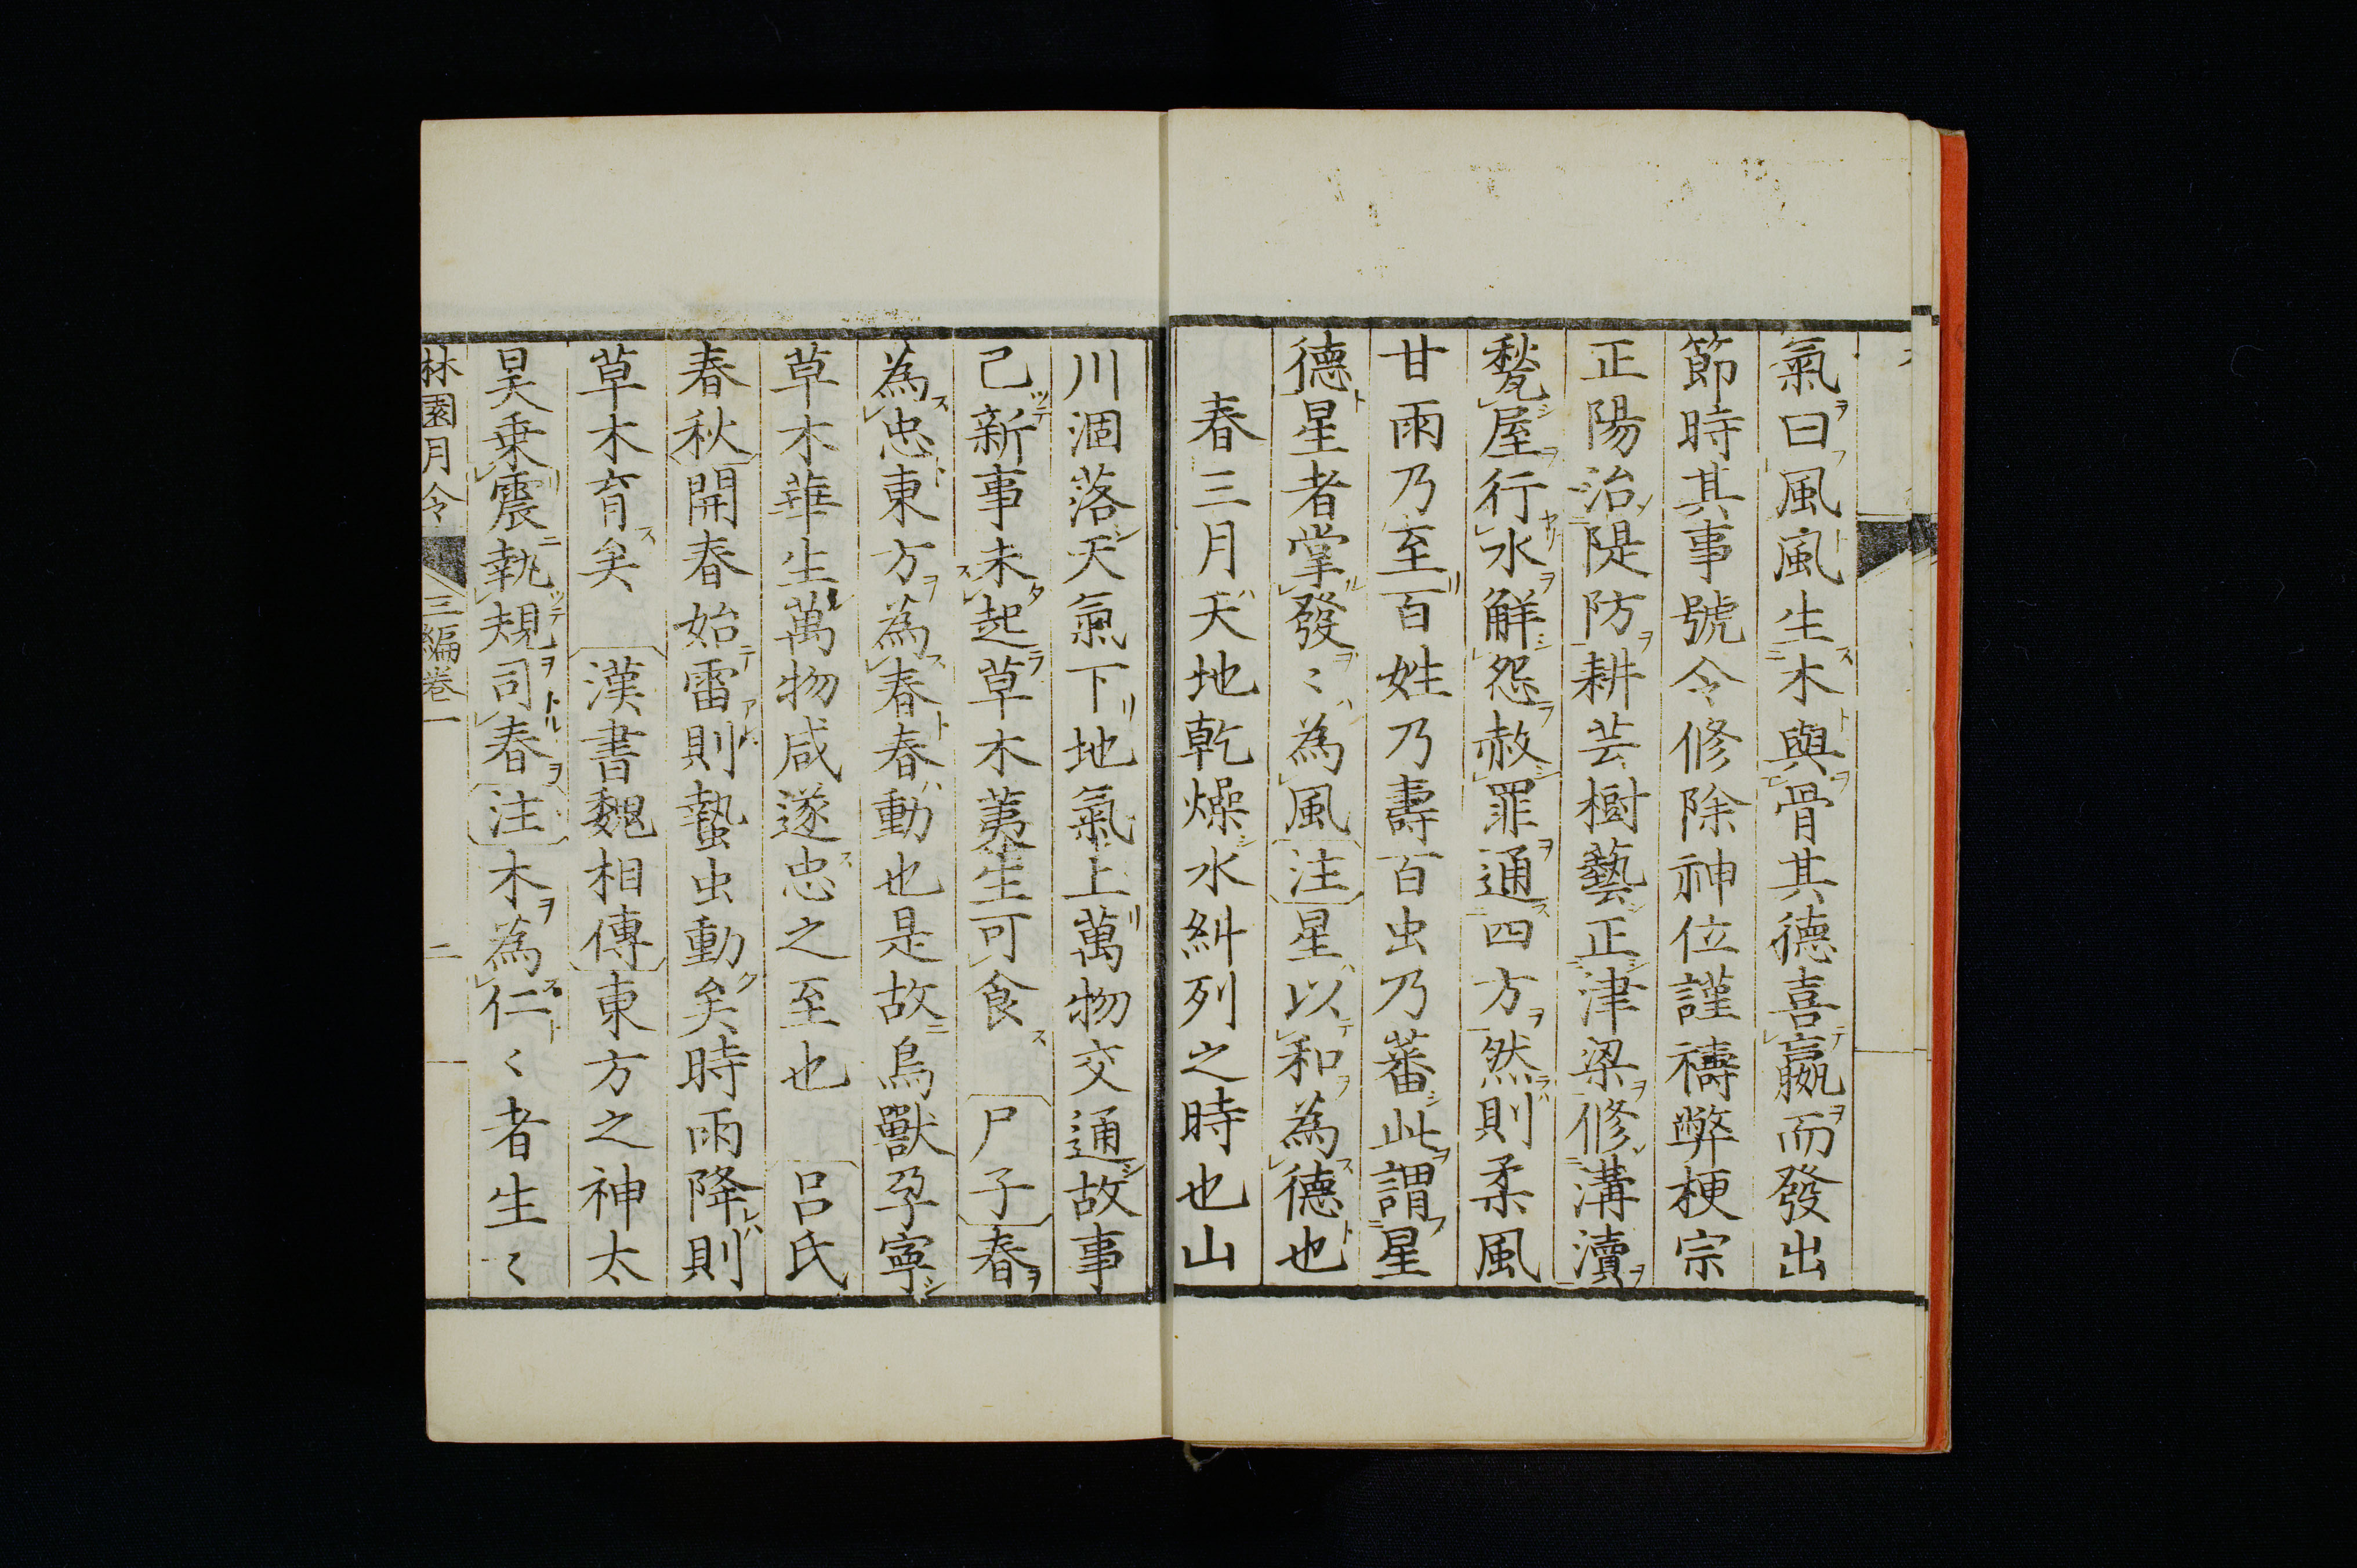 氣曰風風生木與骨其德喜嬴而發出
節時其事號令修除神位謹禱弊梗宗
正陽治隄防耕芸樹藝正津梁修溝瀆
甃屋行水解怨赦罪通四方然則柔風
甘雨乃至百姓乃壽百虫乃蕃此謂星
德星者掌發〻為風注星以和為德也
春三月天地乾燥水糾列之時也山
川涸落天氣下地氣上萬物交通故事
已新事未起草木荑生可食 尸子春
為忠東方為春春動也是故鳥獸孕寧
草木華生萬物咸遂忠之至也 呂氏
春秋開春始雷則蟄虫動矣時雨降則
草木育矣 漢書魏相傳東方之神太
昊乗震執規司春注木為仁〻者生〻
林園月令 三編卷一 二